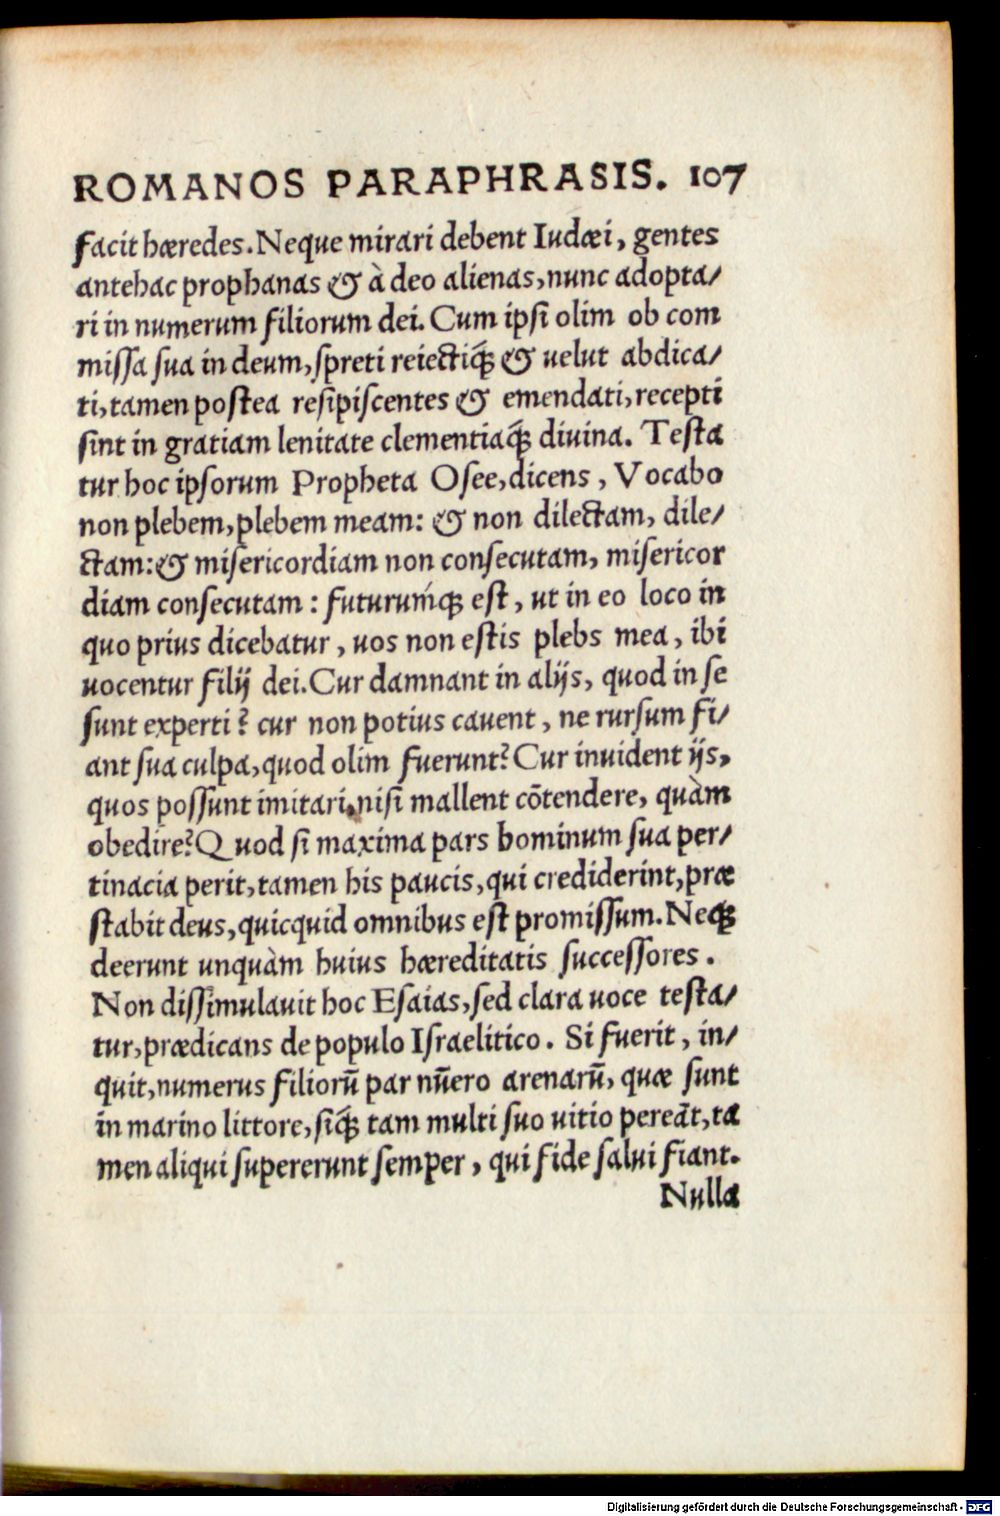 ROMANOS PARAPHRASIS. 107
facit hæredes. Neque mirari debent Iudæi, gentes
antehac prophanas & à deo alienas, nunc adopta/
ri in numerum filiorum dei. Cum ipsi olim ob com
missa sua in deum, spreti reiectiq́; & uelut abdica/
ti, tamen postea resipiscentes & emendati, recepti
sint in gratiam lenitate clementiaq́; diuina. Testa
tur hoc ipsorum Propheta Osee, dicens, Vocabo
non plebem, plebem meam: & non dilectam, dile/
ctam: & misericordiam non consecutam, misericor
diam consecutam: futurumq́; est, ut in eo loco in
quo prius dicebatur, uos non estis plebs mea, ibi
uocentur filij dei. Cur damnant in alijs, quod in se
sunt experti? cur non potius cauent, ne rursum fi/
ant sua culpa, quod olim fuerunt? Cur inuident ijs,
quos possunt imitari, nisi mallent cōtendere, quàm
obedire? Quod si maxima pars hominum sua per/
tinacia perit, tamen his paucis, qui crediderint, præ
stabit deus, quicquid omnibus est promissum. Neq;
deerunt unquàm huius hæreditatis successores.
Non dissimulauit hoc Esaias, sed clara uoce testa/
tur, prædicans de populo Israelitico. Si fuerit, in/
quit, numerus filiorū par nūero arenarū, quæ sunt
in marino littore, siq́; tam multi suo uitio pereāt, ta
men aliqui supererunt semper, qui fide salui fiant.
Nulla
Digitalisierung gefördert durch die Deutsche Forschungsgemeinschaft - DFG